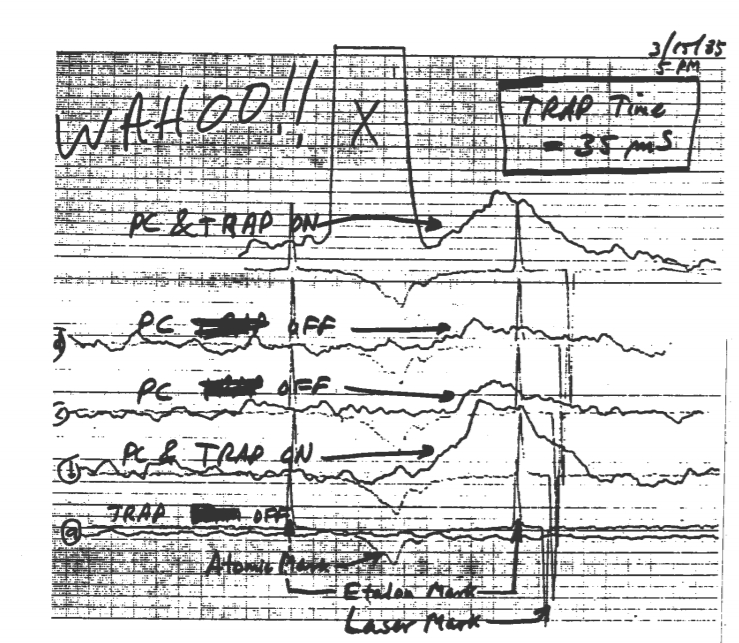 3/15/85
5 PM
WAHOO!!
X
TRAP Time
= 35 mS
PC & TRAP ON
PC OFF
PC OFF
PC & TRAP ON
TRAP OFF
Atomic Mark
Etalon Mark
Laser Mark